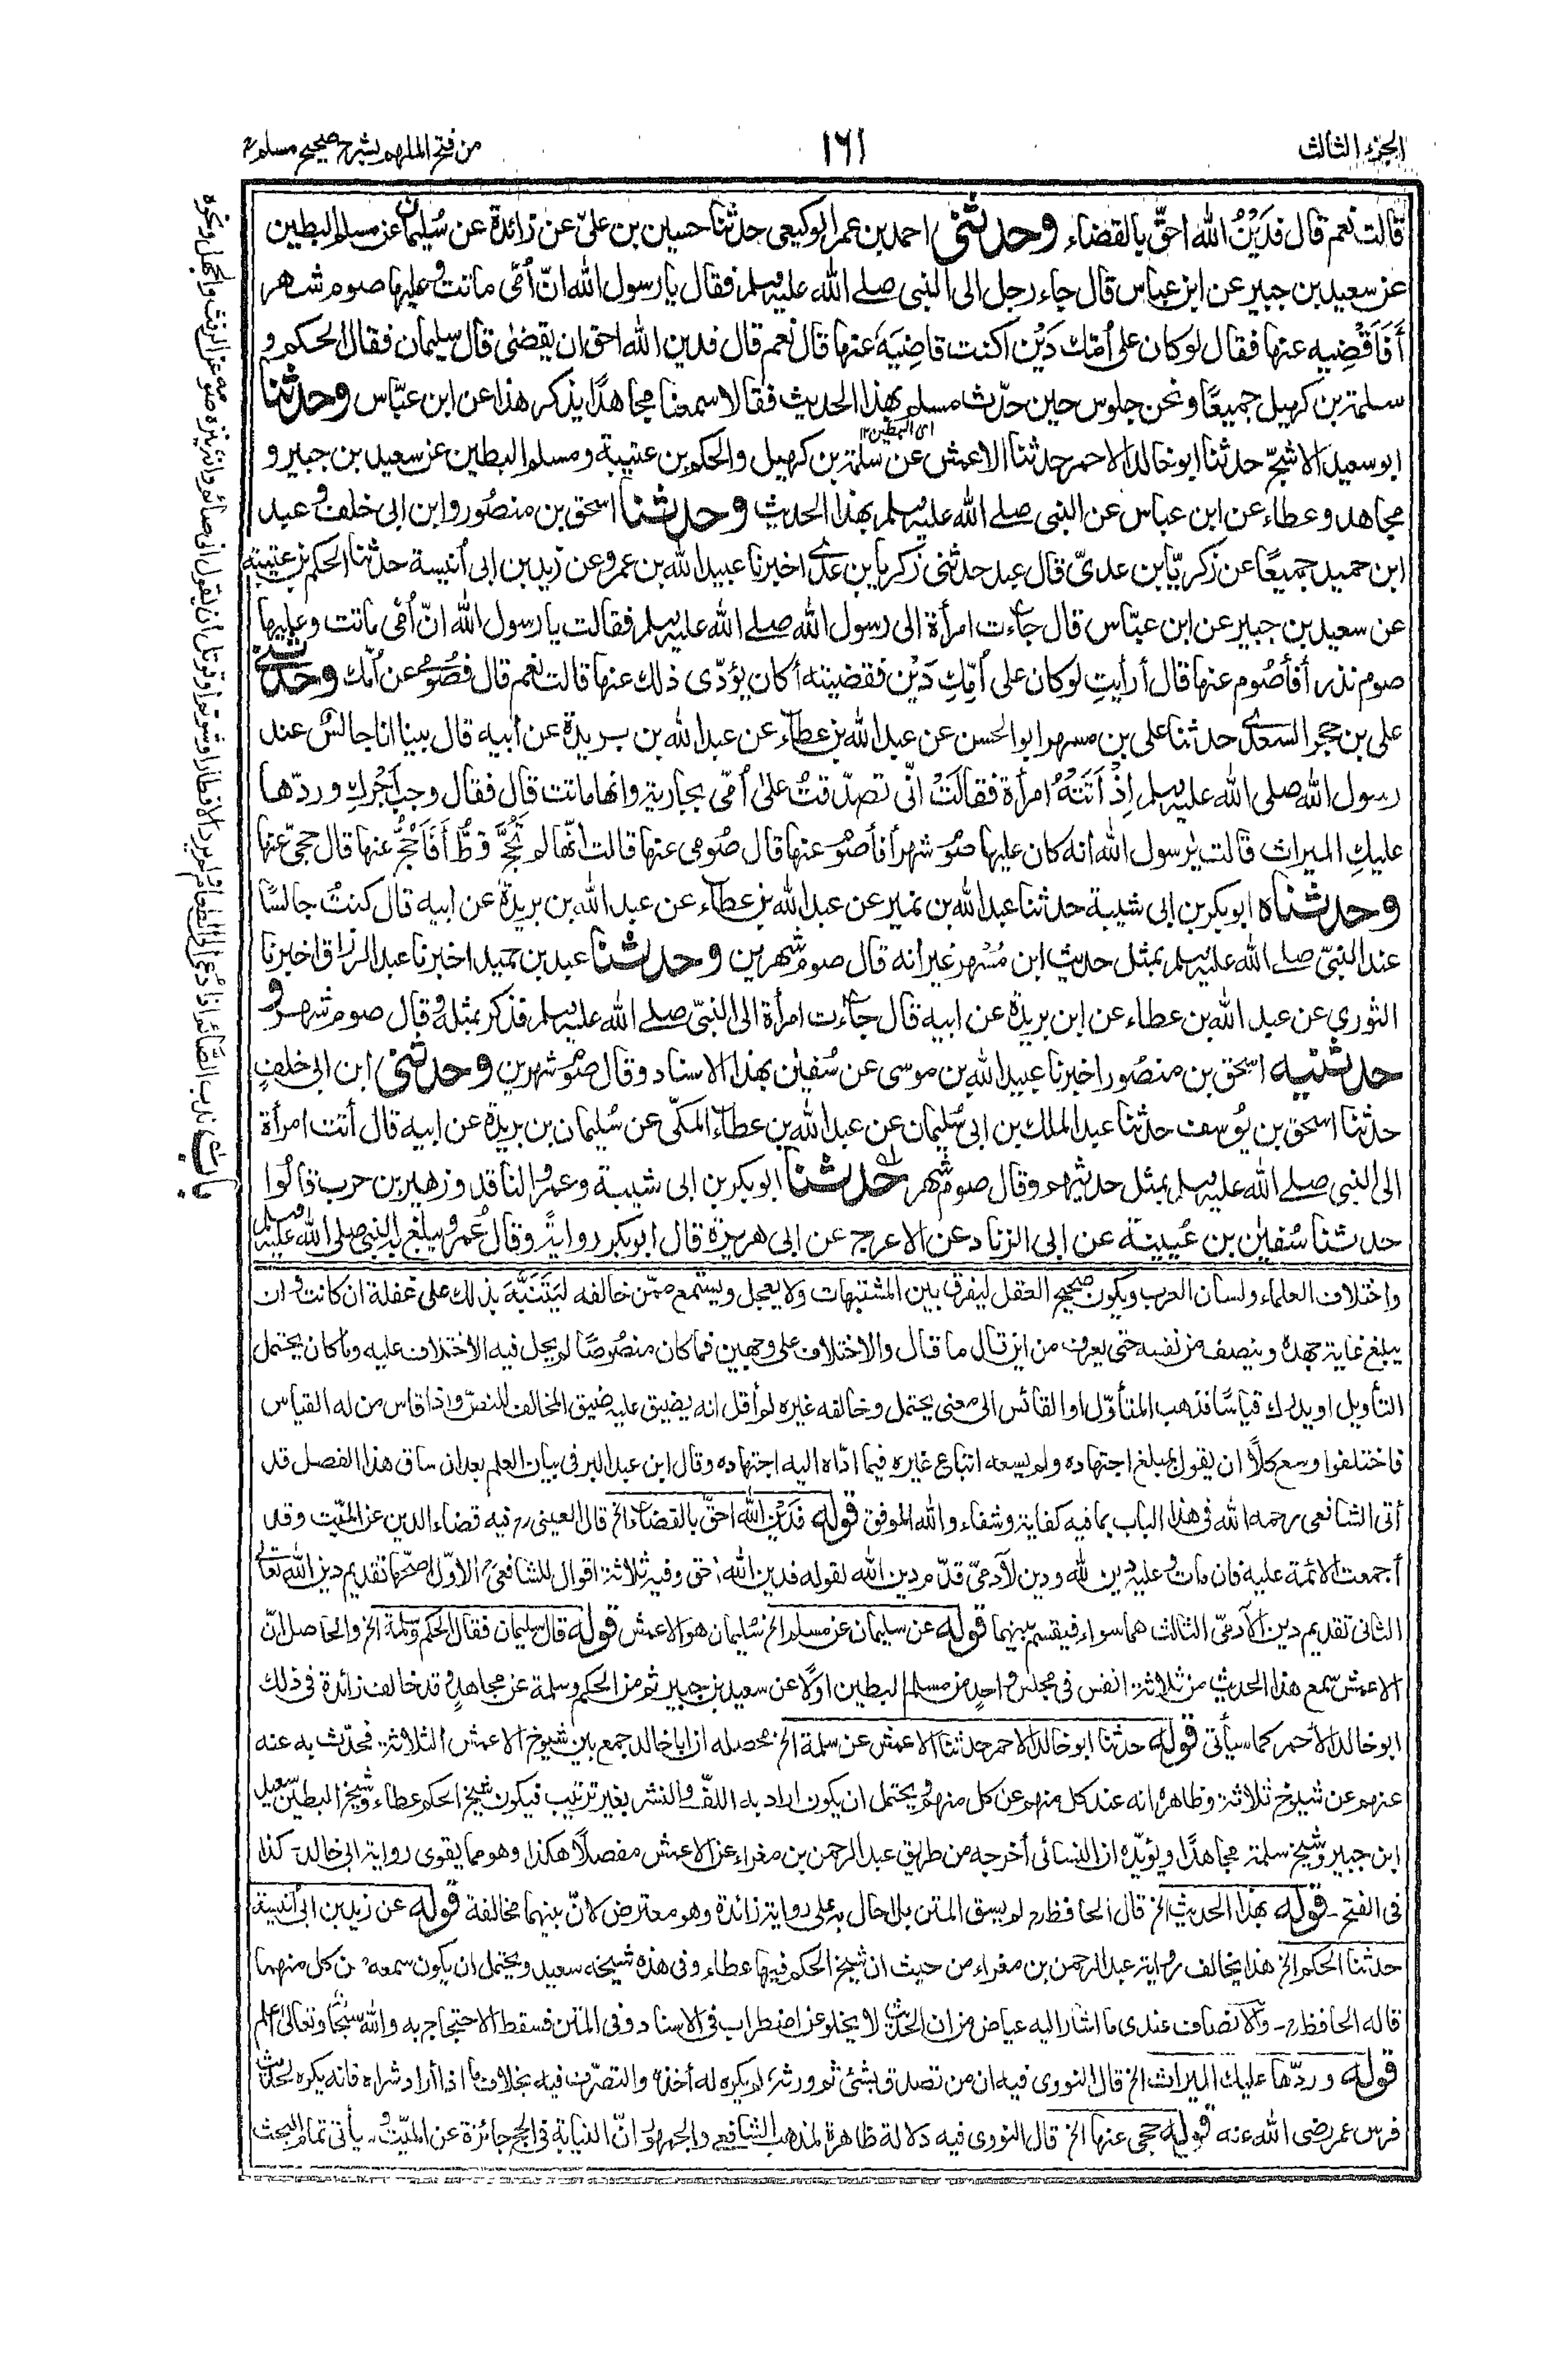 الجزء الثالث
١٦١
من فتح الملهم بشرح صحيح مسلم
قالت نعم قال فَدَيْنُ الله احقّ بالقضاء وحدثنى احمد بن عمر الوكيعى حدثنا حسين بن علىّ عن زائدة عن سُليمان عن مسلم البطين
عن سعيد بن جبير عن ابن عباس قال جاء رجل الى النبى صلى الله عليه وسلم فقال يا رسول الله انّ اُمّى ماتت وعليها صوم شهر
أَفَأَقْضِيه عنها فقال لو كان على اُمّك دَيْن اكنت قاضِيَهٗ عنها قال نعم قال فدين الله احق ان يقضىٰ قال سليمان فقال الحكم و
سلمة بن كهيل جميعًا ونحن جلوس حين حدّث مسلم بهذا الحديث فقالا سمعنا مجاهدًا يذكر هذا عن ابن عبّاس وحدثنا
اى البطين ١٢
ابو سعيد الاشجّ حدثنا ابو خالد الاحمر حدثنا الاعمش عن سلمة بن كهيل والحكم بن عتيبة ومسلم البطين عن سعيد بن جبير و
مجاهد وعطاء عن ابن عباس عن النبى صلى الله عليه وسلم بهذا الحديث وحدثنا اسحق بن منصُور وابن ابى خلف وعبد
ابن حميد جميعًا عن زكريّا بن عدىّ قال عبد حدثنى زكريا بن عدى اخبرنا عبيد الله بن عمرو عن زيد بن ابى اُنيسة حدثنا الحكم بن عتيبة
عن سعيد بن جبير عن ابن عبّاس قال جاءت امرأة الى رسول الله صلى الله عليه وسلم فقالت يا رسول الله انّ اُمّى ماتت وعليها
صوم نذر أفأصُوم عنها قال أرأيتِ لو كان على اُمِّكِ دَيْن فقضيته أكان يؤدّى ذلك عنها قالت نعم قال فصُومى عن اُمّك وحدثنى
على بن حجر السعدى حدثنا على بن مسهر ابو الحسن عن عبد الله بن عطاء عن عبد الله بن بريدة عن أبيه قال بينا انا جالسٌ عند
رسول الله صلى الله عليه وسلم اِذْ أَتَتْهُ امرأة فقالَتْ انّى تصدّقتُ علىٰ اُمّى بجارية وانها ماتت قال فقال وجب اَجْرُكِ وردّها
عليكِ الميراث قالت يا رسول الله انه كان عليها صوم شهر أفأصوم عنها قال صُومى عنها قالت انّها لم تَحُجَّ قطُّ أَفَأَحُجُّ عنها قال حجّى عنها
وحدثناه ابو بكر بن ابى شيبة حدثنا عبد الله بن نمير عن عبد الله بن عطاء عن عبد الله بن بريدة عن ابيه قال كنتُ جالسًا
عند النبىّ صلى الله عليه وسلم بمثل حديث ابن مُسْهر غير انه قال صوم شهرين وحدثنا عبد بن حميد اخبرنا عبد الرزاق اخبرنا
الثورى عن عبد الله بن عطاء عن ابن بريدة عن ابيه قال جاءت امرأة الى النبىّ صلى الله عليه وسلم فذكر بمثله وقال صوم شهر و
حدثنيه اسحق بن منصُور اخبرنا عبيد الله بن موسى عن سُفيٰن بهذا الاسناد وقال صوم شهرين وحدثنى ابن ابى خلفٍ
حدثنا اسحق بن يُوسف حدثنا عبد الملك بن ابى سُليمان عن عبد الله بن عطاء المكّى عن سُليمان بن بريدة عن ابيه قال أتت امرأة
الى النبى صلى الله عليه وسلم بمثل حديثهم وقال صوم شهر حدثنا ابو بكر بن ابى شيبة وعمرو الناقد وزهير بن حرب قالُوا
حدثنا سُفيٰن بن عُيينة عن ابى الزناد عن الاعرج عن ابى هريرة قال ابو بكر روايةً وقال عُمرو يبلغ به النبى صلى الله عليه وسلم
واختلاف العلماء ولسان العرب ويكون صحيح العقل ليفرق بين المشتبهات ولا يعجل ويستمع ممّن خالفه لِيَتَنَبَّهَ بذلك على غفلة ان كانت وان
يبلغ غاية جهده وينصف من نفسه حتى يعرف من اين قال ما قال والاختلاف على وجهين فما كان منصُوصًا لم يحل فيه الاختلاف عليه وما كان يحتمل
التأويل او يدرك قياسًا فذهب المتأوّل او القائس الى معنى يحتمل وخالفه غيره لم أقل انه يضيق عليه ضيق المخالف للنصّ واذا قاس من له القياس
فاختلفوا وسع كلاًّ ان يقول بمبلغ اجتهاده ولم يسعه اتباع غيره فيما ادّاه اليه اجتهاده وقال ابن عبد البر فى بيان العلم بعد ان ساق هذا الفصل قد
أتى الشافعى رحمه الله فى هذا الباب بما فيه كفاية وشفاء والله الموفق قوله فَدَيْنُ الله احقّ بالقضاء الخ قال العينى رح فيه قضاء الدين عن الميّت وقد
أجمعت الائمة عليه فان مات وعليه دين لله ودين لآدمىّ قدّم دين الله لقوله فدين الله احق وفيه ثلاثة اقوال للشافعى الاوّل اصحّها تقديم دين الله تعالى
الثانى تقديم دين الآدمىّ الثالث هما سواء فيقسم بينهما قوله عن سليمان عن مسلم الخ سُليمان هو الاعمش قوله قال سليمان فقال الحكم وسلمة الخ والحاصل انّ
الاعمش سمع هذا الحديث من ثلاثة انفس فى مجلس واحدٍ من مسلم البطين اولًا عن سعيد بن جبير ثم من الحكم وسلمة عن مجاهدٍ وقد خالف زائدة فى ذلك
ابو خالد الأحمر كما سيأتى قوله حدثنا ابو خالد الاحمر حدثنا الاعمش عن سلمة الخ محصله ان ابا خالد جمع بين شيوخ الاعمش الثلاثة فحدّث به عنه
عنهم عن شيوخ ثلاثة وظاهره انه عند كل منهم عن كل منهم ويحتمل ان يكون اراد به اللفّ والنشر بغير ترتيب فيكون شيخ الحكم عطاء وشيخ البطين سعيد
ابن جبير وشيخ سلمة مجاهدًا ويؤيّده ان النسائى أخرجه من طريق عبد الرحمن بن مغراء عن الاعمش مفصلًا هكذا وهو مما يقوى رواية ابى خالد كذا
فى الفتح - قوله بهذا الحديث الخ قال الحافظ رح لم يسق المتن بل احال به على رواية زائدة وهو معترض لانّ بينهما مخالفة قوله عن زيد بن ابى أنيسة
حدثنا الحكم الخ هذا يخالف رواية عبد الرحمن بن مغراء من حيث ان شيخ الحكم فيها عطاء وفى هذه شيخه سعيد ويحتمل ان يكون سمعه من كل منهما
قاله الحافظ رح - والانصاف عندى ما اشار اليه عياض من ان الحديث لا يخلو عن اضطراب فى الاسناد وفى المتن فسقط الاحتجاج به والله سبحانه وتعالىٰ اعلم
قوله وردّها عليك الميراث الخ قال النووى فيه ان من تصدق بشئ ثم ورثه لم يكره له أخذه والتصرّف فيه بخلاف ما اذا أراد شراه فانه يكره لحديث
فرس عمر رضى الله عنه قوله حجى عنها الخ قال النووى فيه دلالة ظاهرة لمذهب الشافعى والجمهور انّ النيابة فى الحج جائزة عن الميّت و يأتى تمام البحث
باب ندب الصَّائم اذا دعى الى الطعام ولم يرد الافطار او شوتم او قوتل أن يقول انى صائم وانه ينزه صومه عن الرفث والجهل ونحوه